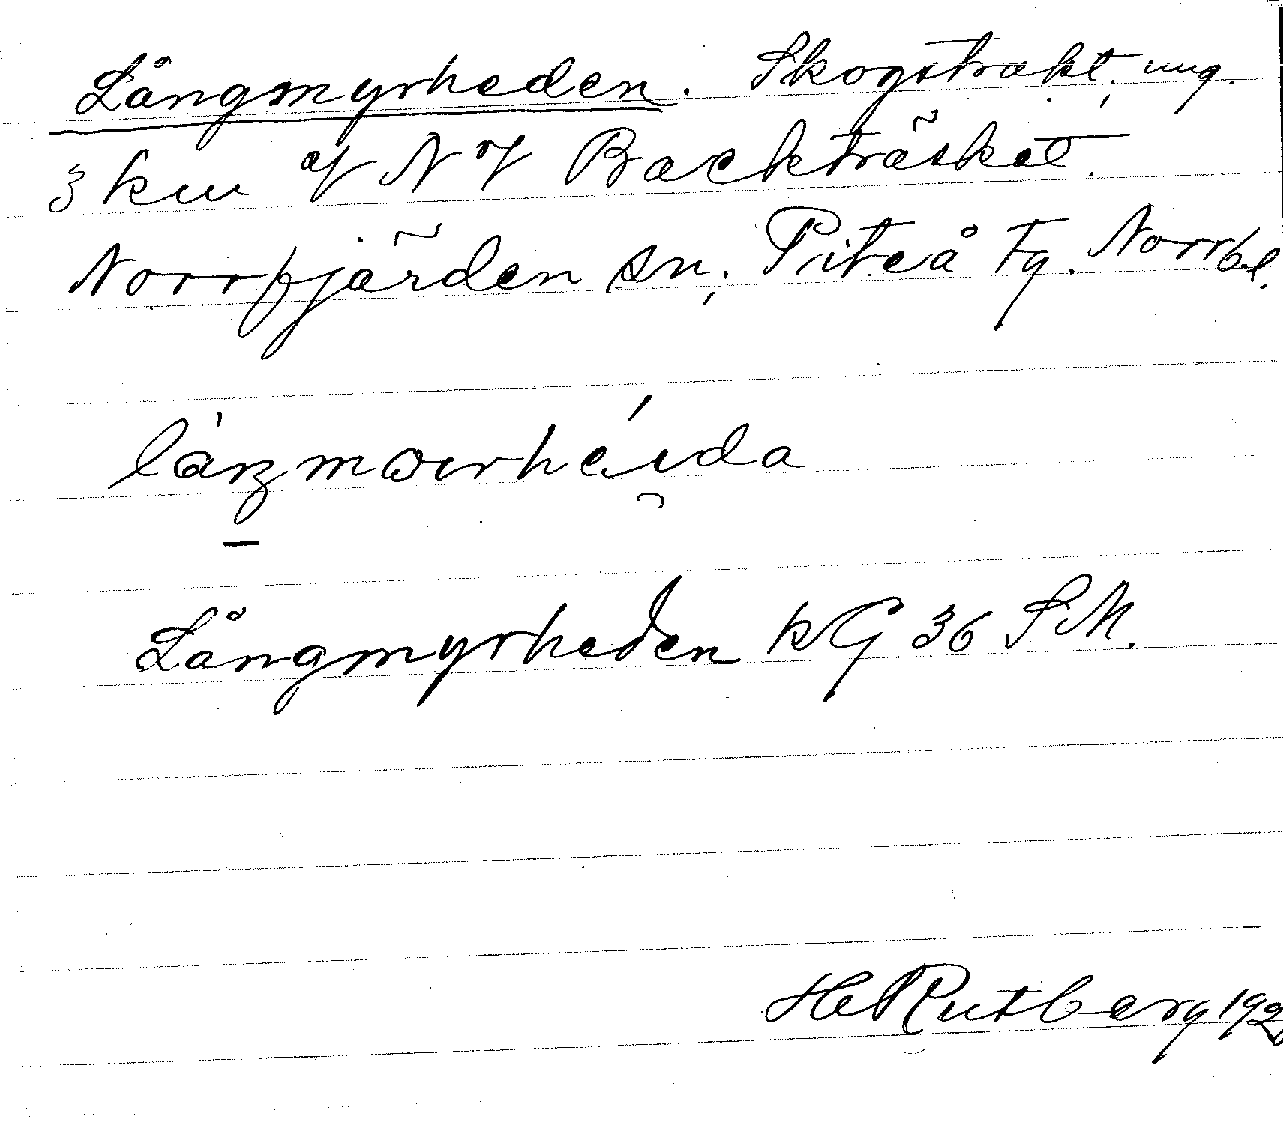 Långmyrheden. Skogstrakt, ung.
3 km VNV Backträsket.
Norrfjärden sn, Piteå tg. Norrb l.
Långmyrheden kG 36 SM.
H Rutberg